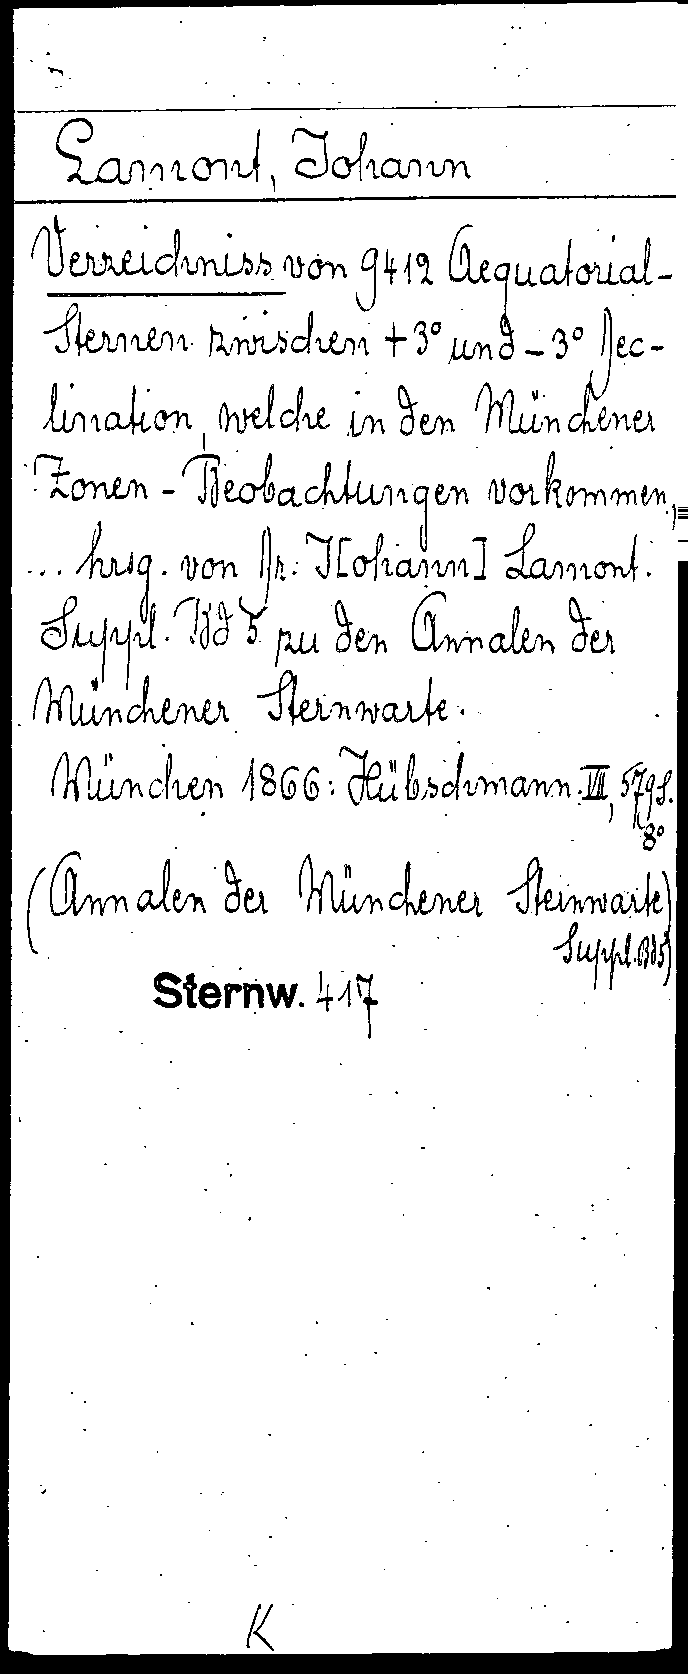 Lamont, Johann
Verzeichniss von 9412 Aequatorial-
Sternen zwischen +3° und -3° Dec-
lination, welche in den Münchener
Zonen-Beobachtungen vorkommen,
... hrsg. von Dr. J[ohann] Lamont.
Suppl. Bd 5 zu den Annalen der
Münchener Sternwarte.
München 1866: Hübschmann. VII, 579 S.
8°
(Annalen der Münchener Sternwarte)
Suppl. Bd 5)
Sternw. 417
K